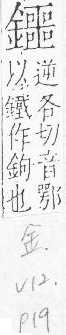 鑩
逆各切音鄂
以鐵作鉤也
金.
V12.
P19